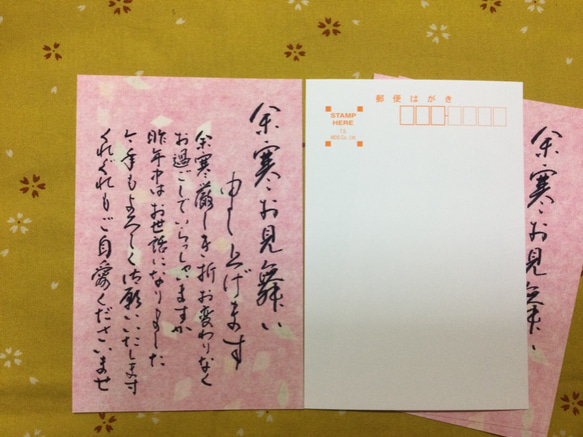 余寒お見舞い
申し上げます
余寒厳しき折お変わりなく
お過ごしでいらっしゃいますか
昨年中はお世話になりました
今年もよろしく御願いいたします
くれぐれもご自愛くださいませ
郵便はがき
STAMP
HERE
余寒お見舞い